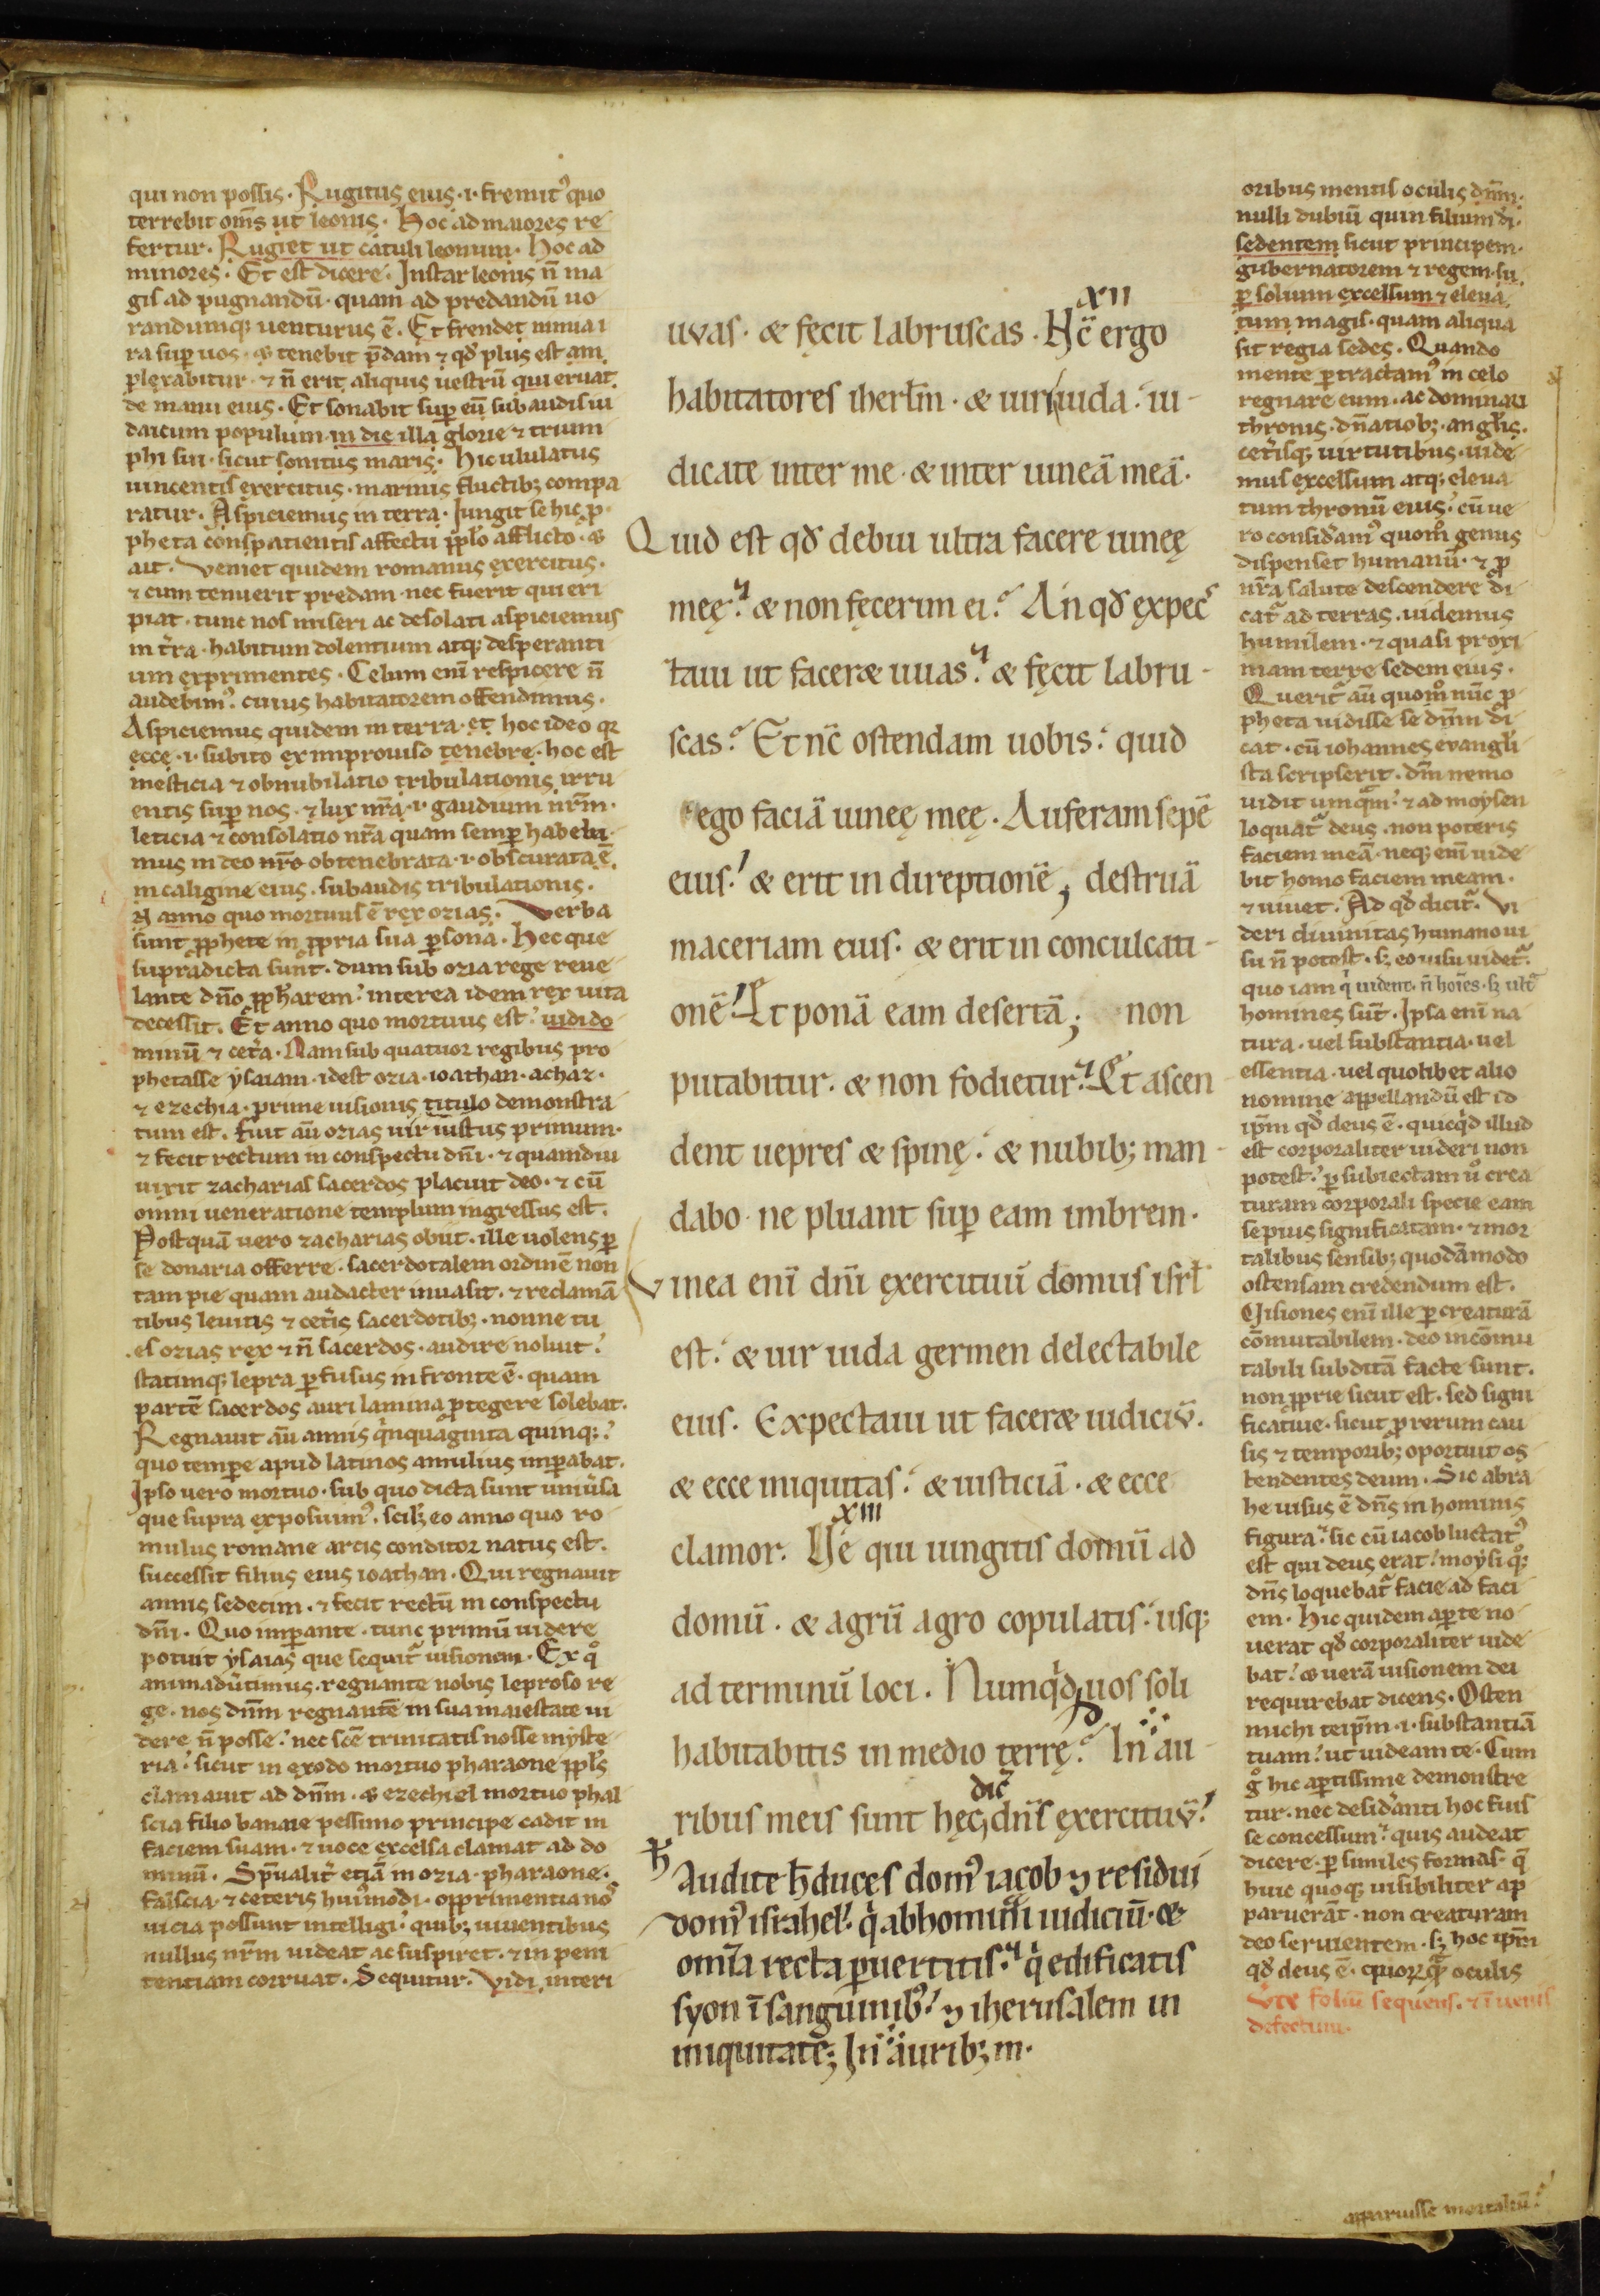 qui non possis. Rugitus eius .i. fremitꝰ quo
terrebit om̄s ut leonis. Hoc ad maiores re
fertur. Rugiet ut catuli leonum. Hoc ad
minores. Et est dicere. Instar leonis n̄ ma
gis ad pugnandū. quam ad predandū uo
randumqꝫ uenturus ē. Et frendet minua i
ra suꝑ uos. ⁊ tenebit p̄dam ⁊ qđ plus est am
plexabitur. ⁊ n̄ erit aliquis uestrū qui eruat
de manu eius. Et sonabit suꝑ eū subaudis iu
daicum populum in die illa glorie ⁊ trium
phi sui. sicut sonitus maris. Hic ululatus
uincentis exercitus. marinis fluctibꝫ compa
ratur. Aspiciemus in terra. Iungit se hic ꝓ
pheta conspatientis affectu pp̄lo afflicto. ⁊
ait. Veniet quidem romanus exercitus.
⁊ cum tenuerit predam. nec fuerit qui eri
piat. tunc nos miseri ac desolati aspiciemus
in t̄ra. habitum dolentium atqꝫ desperanti
um exprimentes. Celum eni̅ respicere n̄
audebimꝰ. cuius habitatorem offendimus.
Aspiciemus quidem in terra. et hoc ideo qꝛ
ecce .i. subito ex improuiso tenebre. hoc est
mesticia ⁊ obnubilatio tribulationis irru
entis suꝑ nos. ⁊ lux nr̄a .i. gaudium nr̄m.
leticia ⁊ consolatio nr̄a quam semꝑ habebi
mus in deo nr̄o obtenebrata .i. obscurata ē.
in caligine eius. subaudis tribulationis.
IN anno quo mortuus ē rex ozias. Verba
sunt ꝓphete in ꝓpria sua ꝑsona. Hec que
supradicta sunt. dum sub ozia rege reue
lante dn̄o ꝓph̄arem. interea idem rex uita
decessit. Et anno quo mortuus est. uidi do
minū ⁊ cet̄a. Nam sub quatuor regibus pro
phetasse ysaiam. idest ozia. ioathan. achaz.
⁊ ezechia. prime uisionis titulo demonstra
tum est. Fuit au̅ ozias uir iustus primum.
⁊ fecit rectum in conspectu dn̄i. ⁊ quamdiu
uixit zacharias sacerdos placuit deo. ⁊ cū
omni ueneratione templum ingressus est.
Postquā uero zacharias obiit. ille uolens ꝑ
se donaria offerre. sacerdotalem ordinē non
tam pie quam audacter inuasit. ⁊ reclamā
tibus leuitis ⁊ cet̄is sacerdotibꝫ. nonne tu
es ozias rex ⁊ n̄ sacerdos. audire noluit.
statimqꝫ lepra ꝑfusus in fronte ē. quam
partē sacerdos auri lamina ꝓtegere solebat.
Regnauit au̅ annis q̇nquaginta quinqꝫ.
quo tempore apud latinos amulius imꝑabat.
Ipso uero mortuo. sub quo dicta sunt uniu̅sa
que supra exposuimꝰ. scilꝫ eo anno quo ro
mulus romane arcis conditor natus est.
successit filius eius ioathan. Qui regnauit
annis sedecim. ⁊ fecit rectū in conspectu
dn̄i. Quo imꝑante. tunc primū uidere
potuit ysaias que sequit᷑ uisionem. Ex qͦ
animadu̅timus. regnante nobis leproso re
ge. nos dn̄m regnantē in sua maiestate ui
dere n̄ posse. nec sc̄e trinitatis nosse myste
ria. sicut in exodo mortuo pharaone pp̄ls
clamauit ad dn̄m. ⁊ ezechiel mortuo phal
scia filio banaie pessimo principe cadit in
faciem suam. ⁊ uoce excelsa clamat ad do
minū. Sp̄ualit̄ etiā in ozia. pharaone.
falscia. ⁊ ceteris hui̅modi. opprimentia noˢ
uicia possunt intelligi. quibꝫ uiuentibus
nullus nr̄m uideat ac suspiret. ⁊ in peni
tentiam corruat. Sequitur. Vidi. interi
XII
uuas. & fęcit labruscas. Hc̄ ergo
habitatores iherl̄m. & uiri iuda. iu-
dicate inter me. & inter uineā meā.
Quid est qđ debui ultra facere uineę
meę. & non fęcerim ei. An qđ expec
taui ut faceræ uuas. & fęcit labru-
scas. Et nc̄ ostendam uobis. quid
ego faciā uineę meę. Auferam sepē
eius. & erit in direptionē, destruā
maceriam eius. & erit in conculcati-
onē. Et ponā eam desertā; non
putabitur. & non fodietur. Et ascen
dent uepres & spinę. & nubibꝫ man-
dabo ne pluant suꝑ eam imbrem.
Vinea eni̅ dn̄i exercituū domus isrl̄
est. & uir iuda germen delectabile
eius. Expectaui ut faceræ iudiciū.
& ecce iniquitas. & iusticiā. & ecce
XIII
clamor. Ve qui iungitis domū ad
domū. & agrū agro copulatis. usqꝫ
ad terminū loci. Numq̇d uos soli
habitabitis in medio terrę. In au-
dic̄
ribus meis sunt hęc, dn̄s exercituū.
Audite h̄ duces domꝰ iacob ⁊ residui
domꝰ israhel. q̇ abhominam̄i iudiciū. &
omīa recta ꝑuertitis. q̇ edificatis
syon ī sanguinibꝰ. ⁊ iherusalem in
iniquitate; In auribꝫ m.
oribus mentis oculis dn̄m.
nulli dubiū quin filium di̅.
sedentem sicut principem.
gubernatorem ⁊ regem. su
ꝑ solium excelsum ⁊ eleua
tum magis. quam aliqua
sit regia sedes. Quando
mente ꝑtractamꝰ in celo
regnare eum. ac dominari
thronis. dn̄atiōbꝫ. angl̄is.
cet̄isqꝫ uirtutibus. uide
mus excelsum atqꝫ eleua
tum thronū eius. cū ue
ro consid̄amꝰ quom̊ genus
dispenset humanū. ⁊ ꝓ
nr̄a salute descendere di
cat᷑ ad terras. uidemus
humilem. ⁊ quasi proxi
mam terre sedem eius.
Querit᷑ au̅ quom̊ nūc ꝓ
pheta uidisse se dn̄m di
cat. cū iohannes euangl̄i
sta scripserit. dm̄ nemo
uidit umq̄m. ⁊ ad moysen
loquat᷑ deus. non poteris
faciem meā. neqꝫ eni̅ uide
bit homo faciem meam.
⁊ uiuet. Ad qđ dicit᷑. Vi
deri diuinitas humano ui
su n̄ potest. sꝫ eo uisu uidet᷑.
quo iam q̇ uident. n̄ hoīes. sꝫ ult᷑
homines sūt. Ipsa eni̅ na
tura. uel substantia. uel
essentia. uel quolibet alio
nomine appellandū est id
ip̄m qđ deus ē. quicq̇d illud
est corporaliter uideri non
potest. ꝑ subiectam uͦ crea
turam corporali specie eam
sepius significatam. ⁊ mor
talibus sensibꝫ quodāmodo
ostensam credendum est.
Visiones eni̅ ille ꝑ creaturā
cōmutabilem. deo incōmu
tabili subditā facte sunt.
non ꝓprie sicut est. sed signi
ficatiue. sicut ꝓ rerum cau
sis ⁊ temporibꝫ oportuit os
tendentes deum. Sic abra
he uisus ē dn̄s in hominis
figura. sic cū iacob luctatꝰ
est qui deus erat. moysi qͦꝫ
dn̄s loquebat᷑ facie ad faci
em. Hic quidem aꝑte no
uerat qđ corporaliter uide
bat. ⁊ uerā uisionem dei
requirebat dicens. Osten
michi teip̄m .i. substantiā
tuam. ut uideam te. Cum
gͦ hic aꝑtissime demonstre
tur. nec desid̄anti hoc fuis
se concessum. quis audeat
dicere. ꝑ similes formas. q̄
huic quoqꝫ uisibiliter ap
paruerāt. non creaturam
deo seruientem. sꝫ hoc ip̄m
qđ deus ē. quorūq̄ oculis
Vte foliū sequens. ⁊ īuenis
defectum.
apparuisse mortaliū.